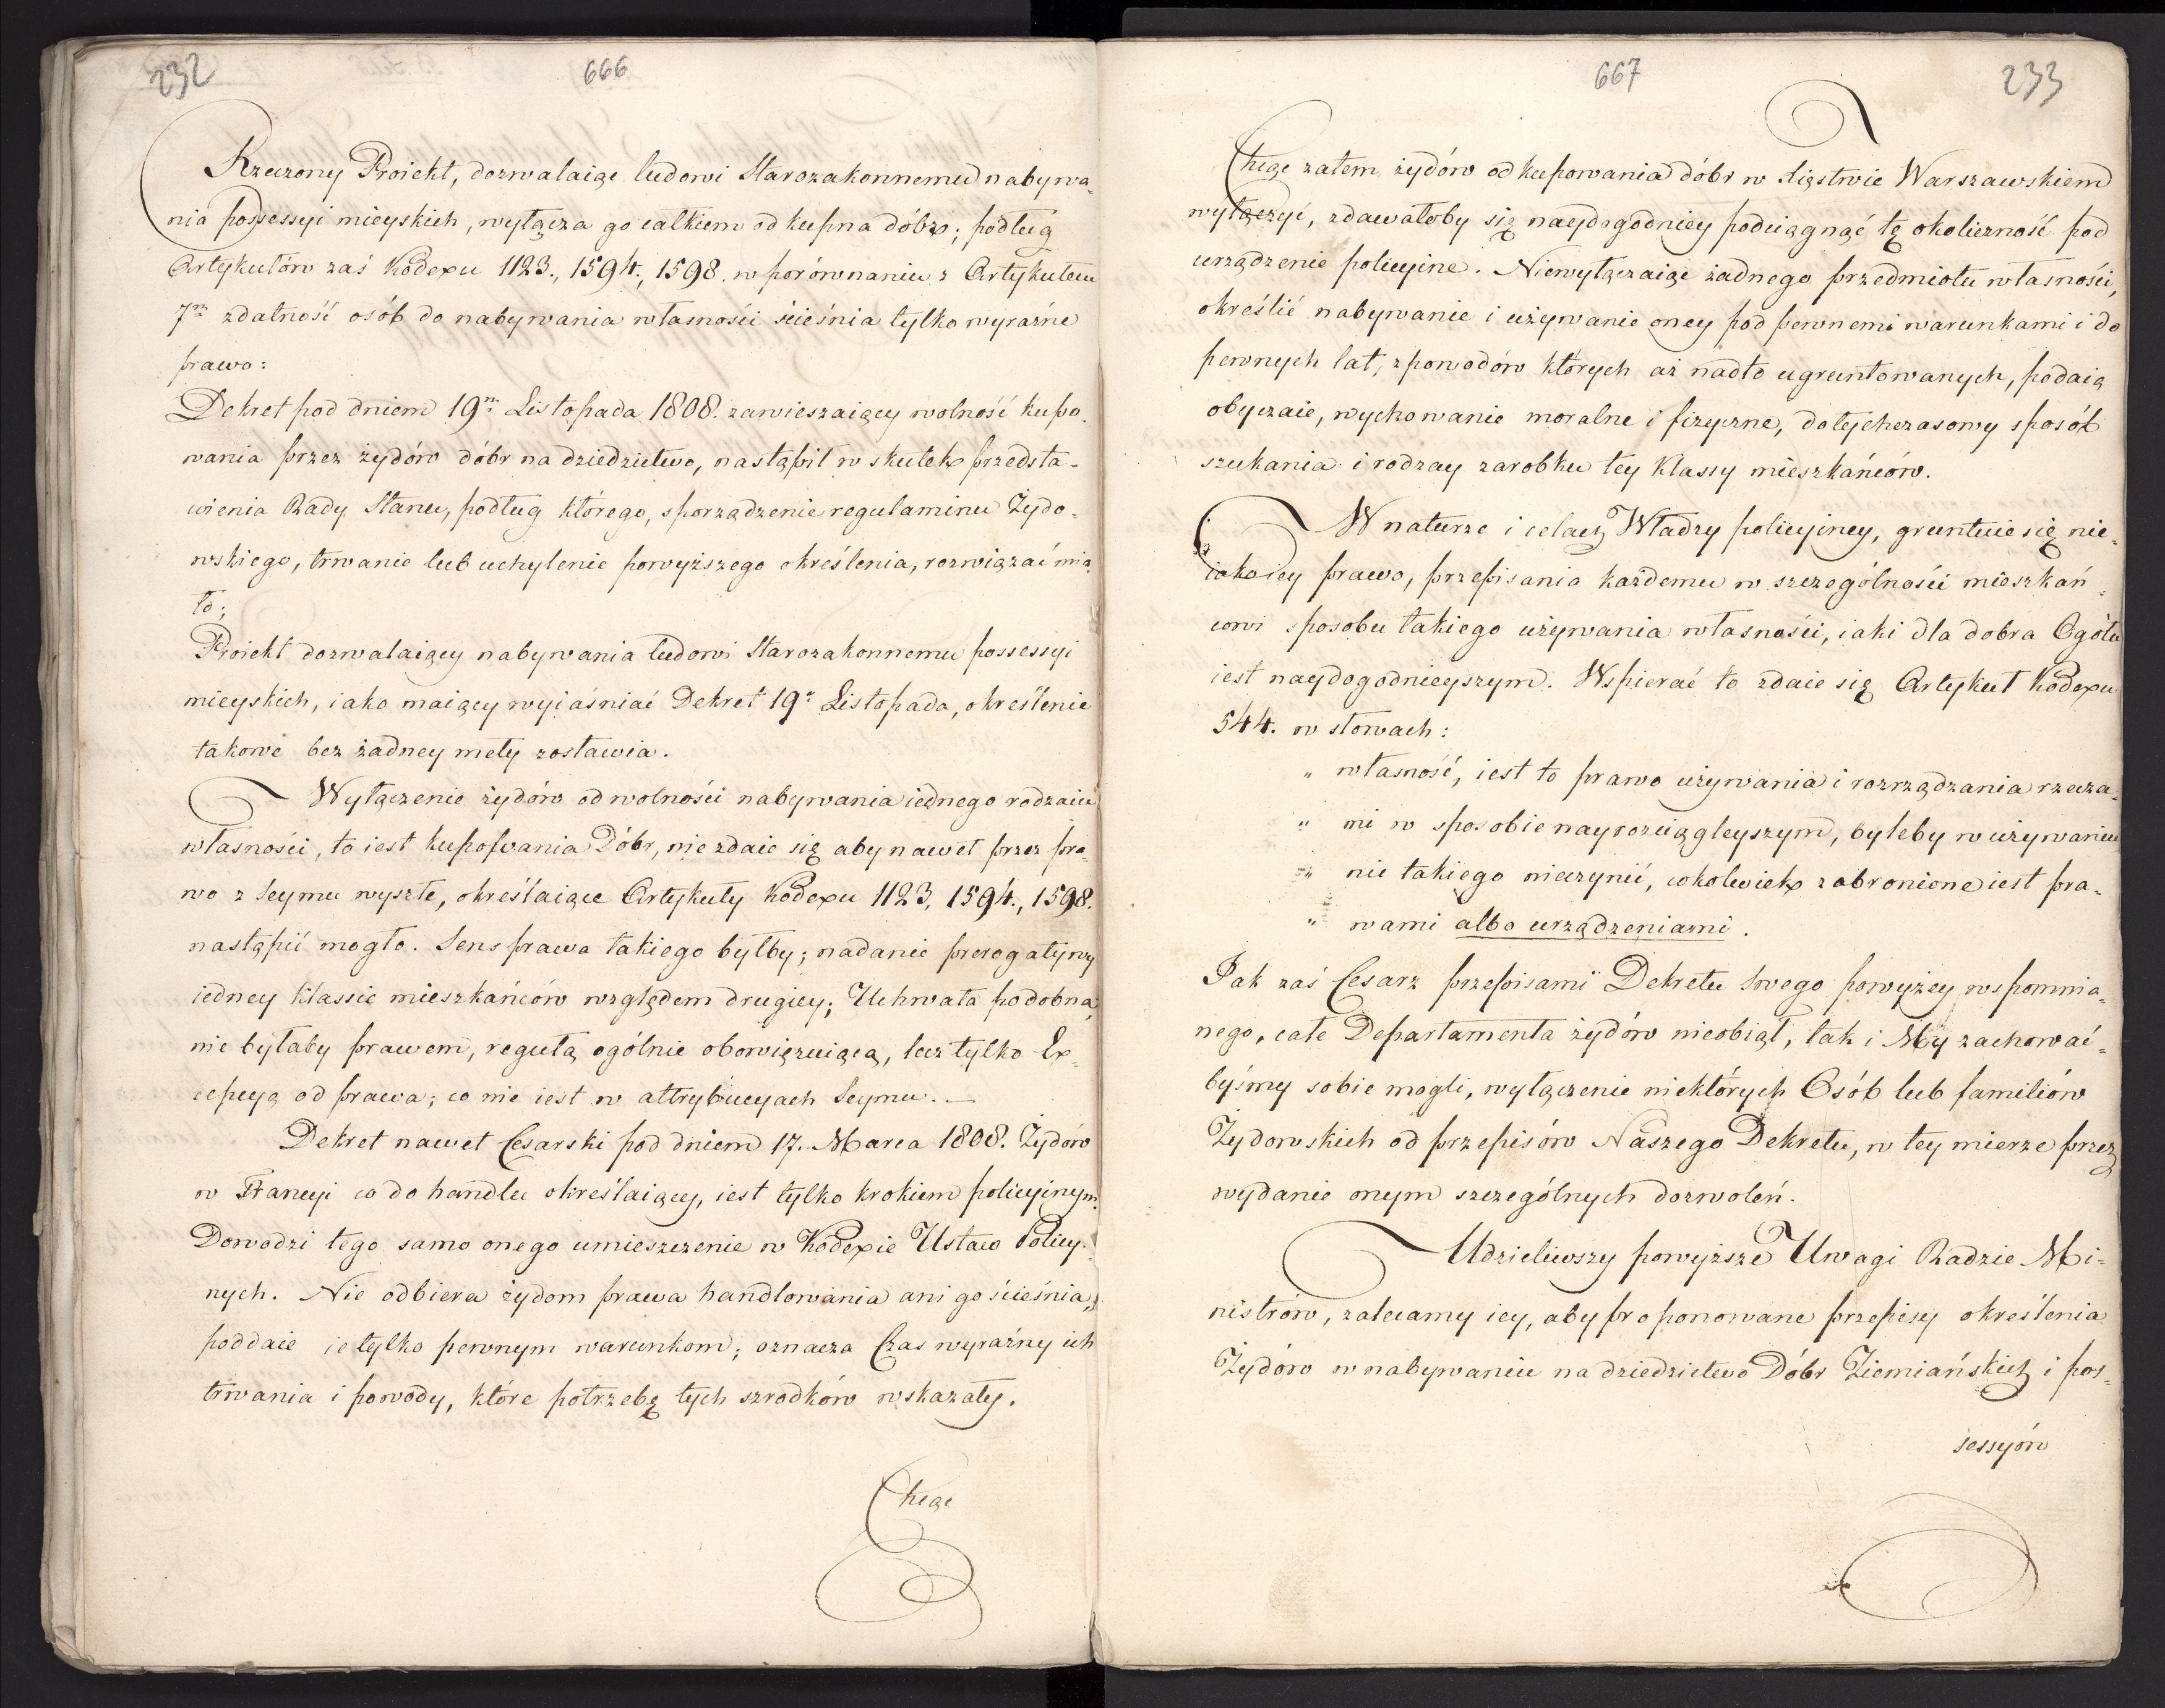 232
666
Rzeczony Proiekt, dozwalaiąc ludowi Starozakonnemu nabywa-
nia possessyi mieyskich, wyłącza go całkiem od kupna dóbr; podług
Artykułów zaś Kodexu 1123., 1594., 1598. w porównaniu z Artykułem
7m zdatność osób do nabywania własności ścieśnia tylko wyraźne
prawo:
Dekret pod dniem 19m Listopada 1808. zawieszaiący wolność kupo-
wania przez żydów dóbr na dziedzictwo, nastąpił w skutek przedsta-
wienia Rady Stanu, podług którego, sporządzenie regulaminu Żydo-
wskiego, trwanie lub uchylenie powyższego określenia, rozwiązać mia
ło;
Proiekt dozwalaiący nabywania ludowi Starozakonnemu possessyi
mieyskich, iako maiący wyiaśniać Dekret 19o Listopada, określenie
takowe bez żadney mety zostawia.
Wyłączenie żydów od wolności nabywania iednego rodzaiu
własności, to iest kupowania Dóbr, nie zdaie się aby nawet przez pra-
wo z Seymu wyszłe, określaiące Artykuły Kodexu 1123, 1594., 1598.
nastąpić mogło. Sens prawa takiego byłby; nadanie prerogatywy
iedney klassie mieszkańców względem drugiey; Uchwała podobna,
nie byłaby prawem, regułą ogólnie obowięzuiącą, lecz tylko Ex-
cepcyą od prawa; co nie iest w attrybucyach Seymu. —
Dekret nawet Cesarski pod dniem 17. Marca 1808. Żydów
w Francyi co do handlu określaiący, iest tylko krokiem policyinym.
Dowodzi tego samo onego umieszczenie w Kodexie Ustaw Policy-
nych. Nie odbiera żydom prawa handlowania ani go ścieśnia,
poddaie ie tylko pewnym warunkom; oznacza Czas wyraźny ich
trwania i powody, które potrzebę tych szrodków wskazały.
Chcąc
667
233
Chcąc zatem żydów od kupowania dóbr w Xięstwie Warszawskiem
wyłączyć, zdawałoby się naydogodniey podciągnąć tę okoliczność pod
urządzenie policyine. Niewyłączaiąc żadnego przedmiotu własności,
określić nabywanie i używanie oney pod pewnemi warunkami i do
pewnych lat, z powodów których aż nadto ugruntowanych, podaią
obyczaie, wychowanie moralne i fizyczne, dotychczasowy sposób
szukania i rodzay zarobku tey Klassy mieszkańców.
W naturze i celach Władzy policyiney, gruntuie się nie-
iako iey prawo, przepisania każdemu w szczególności mieszkań-
cowi sposobu takiego używania własności, iaki dla dobra Ogółu
iest naydogodnieyszym. Wspierać to zdaie się Artykuł Kodexu
544. w słowach:
„ własność, iest to prawo używania i rozrządzania rzecza-
„ mi w sposobie nayrozciągleyszym, byleby w używaniu
„ nic takiego nieczynić, cokolwiek zabronione iest pra-
„ wami albo urządzeniami.
Jak zaś Cesarz przepisami Dekretu Swego powyżey wspomnia-
nego, całe Departamenta żydów nieobiął, tak i My zachować-
byśmy sobie mogli, wyłączenie niektórych Osób lub familiów
Żydowskich od przepisów Naszego Dekretu, w tey mierze przez
wydanie onym szczególnych dozwoleń.
Udzieliwszy powyższe Uwagi Radzie Mi-
nistrów, zalecamy iey, aby proponowane przepisy określenia
Żydów w nabywaniu na dziedzictwo Dóbr Ziemiańskich i pos-
sessyów